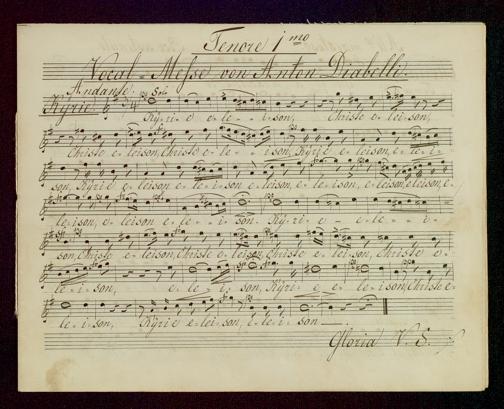 Tenore 1mo
Vocal-Messe von Anton Diabelli.
Andante.
Solo
Kyrie
Kyri-e e-le-ison, Christe e-leison,
Christe e-leison, Christe e-le-ison, Kyrie e-leison, e-le-i-
son, Kyrie e-leison e-le-ison e-leison, e-le-ison, e-leison, eleison, e-
le-ison, e-leison e-le-i-son. Ky-ri-e e-le-i-
son, Christe e-leison, Christe e-leison, Christe e-leison, Christe e-
le-i-son, e-le-i-son, Kyri-e e-le-ison, Christe e-
le-i-son, Kyrie e-lei-son, e-le-i-son.
Gloria V. S.